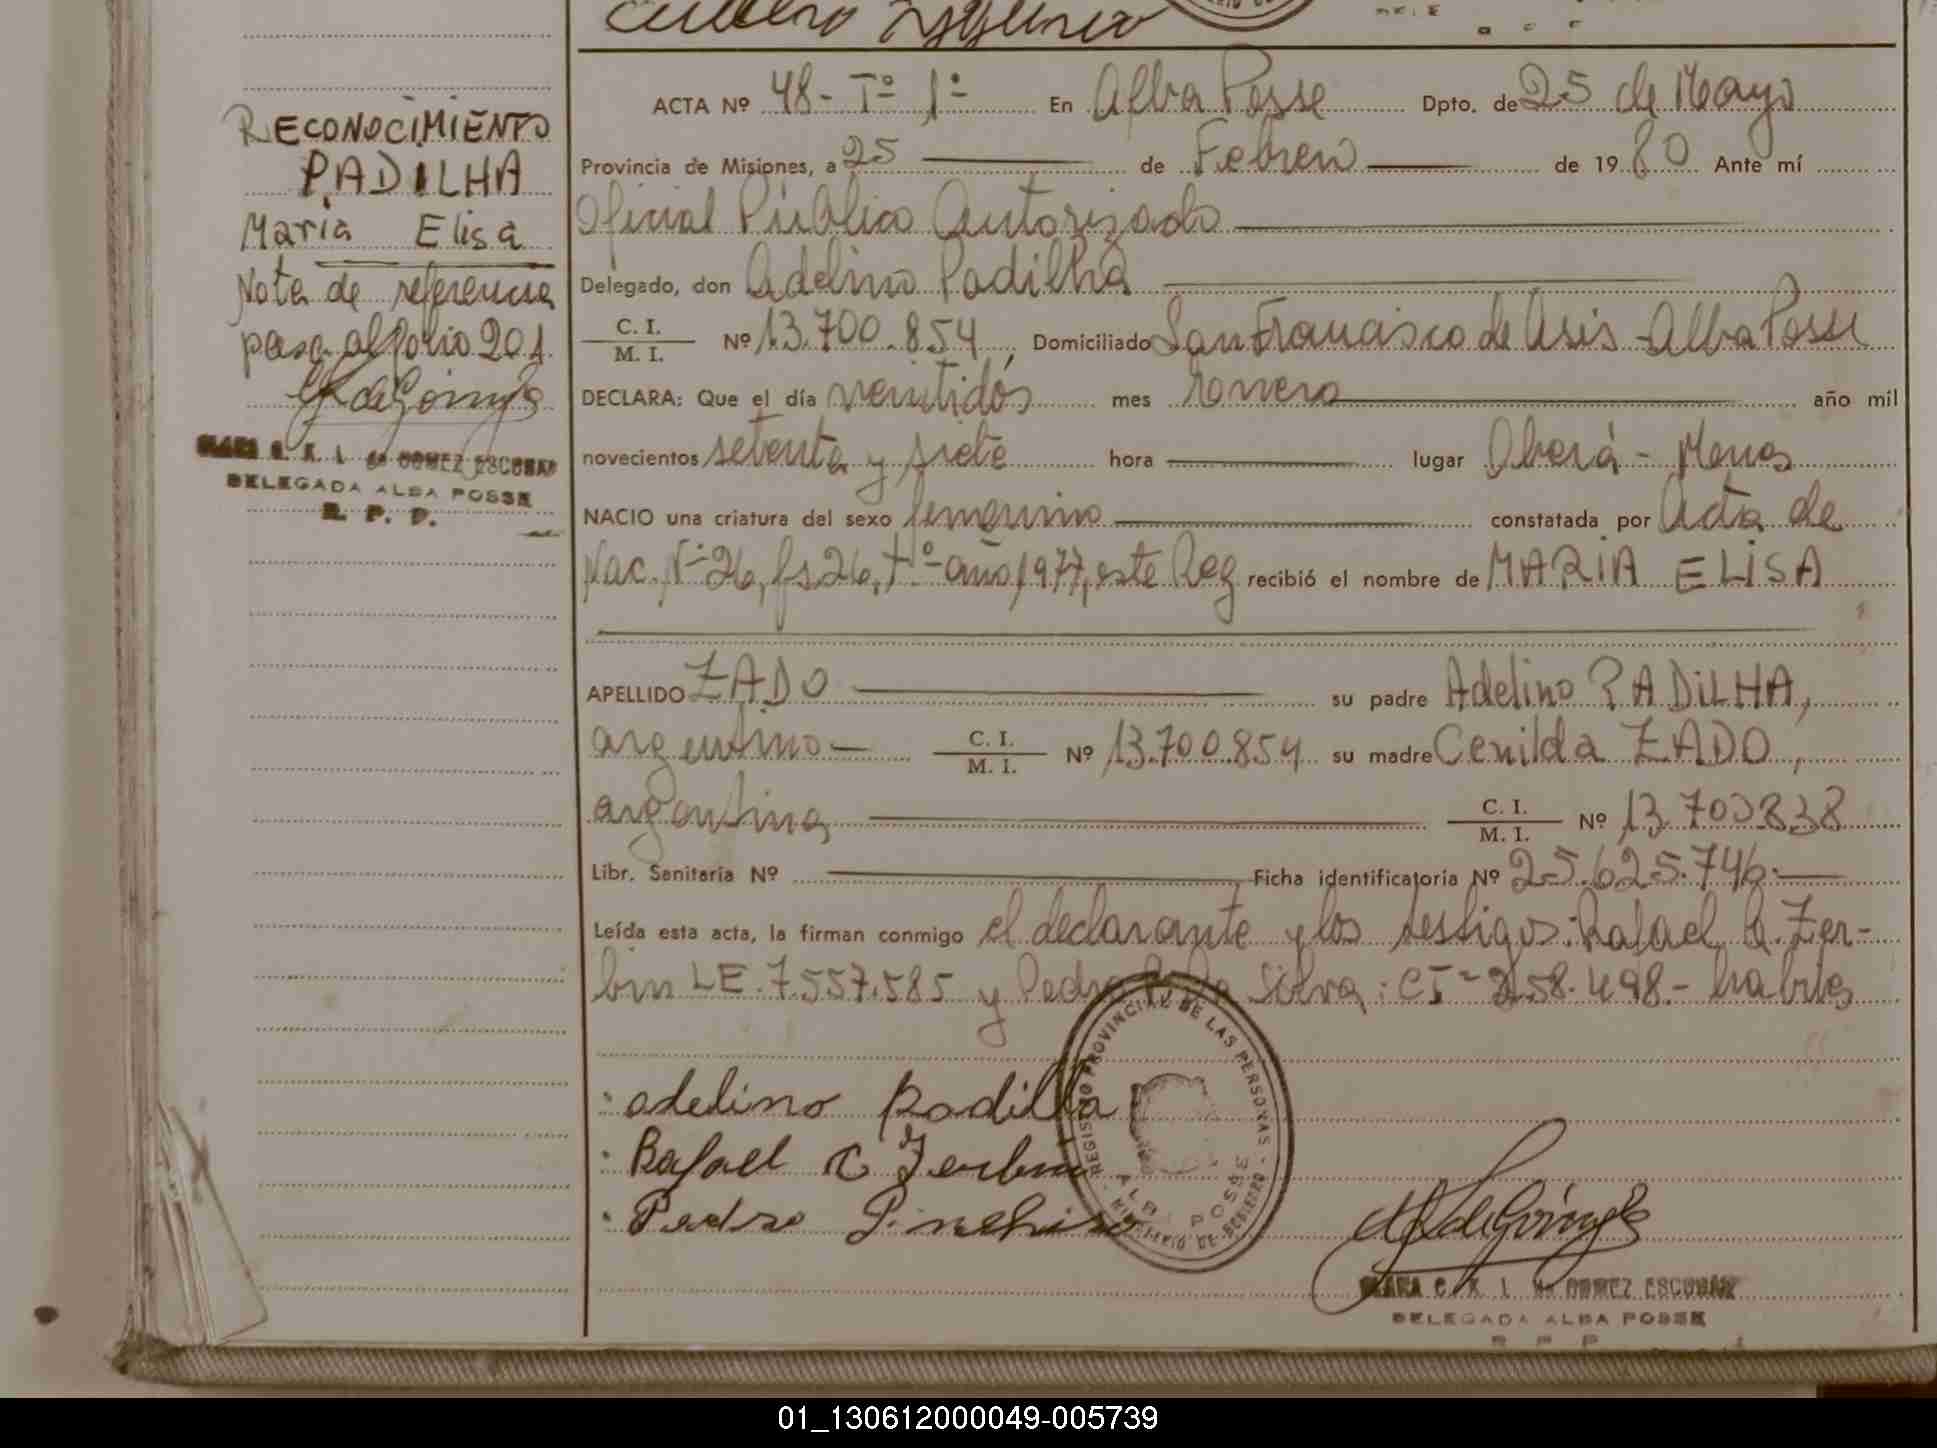 RECONOCIMIENTO
PADILHA
Maria Elisa
Nota de referencia
pasa al folio 201
DELEGADA ALBA POSSE
R. P. P.
ACTA Nº 48 - Tº 1º En Alba Posse Dpto. de 25 de Mayo
Provincia de Misiones, a 25 de Febrero de 1980 Ante mí
Oficial Público Autorizado
Delegado, don Adelino Padilha
C. I.
M. I. Nº 13.700.854, Domiciliado San Francisco de Asis - Alba Posse
DECLARA: Que el día veintidós mes enero año mil
novecientos setenta y siete hora lugar Oberá - Mnes
NACIO una criatura del sexo femenino constatada por Acta de
Nac. Nº 26, fs 26, Tº año 1977, este Reg recibió el nombre de MARIA ELISA
APELLIDO ZADO su padre Adelino PADILHA,
argentino C. I.
M. I. Nº 13.700.854 su madre Cenilda ZADO,
argentina C. I.
M. I. Nº 13.703838
Libr. Sanitaria Nº Ficha identificatoria Nº 25.625.746.
Leída esta acta, la firman conmigo el declarante y los testigos: Rafael C. Zer-
bin LE. 7.557.585 y Pedro Silva: CI - 258.498.- habiles
adelino Padilha
Rafael C Zerbin
Pedro
REGISTRO PROVINCIAL DE LAS PERSONAS - MINISTERIO DE GOBIERNO -
ALBA POSSE
CLARA C. K. I. de GOMEZ ESCOBAR
DELEGADA ALBA POSSE
01_130612000049-005739